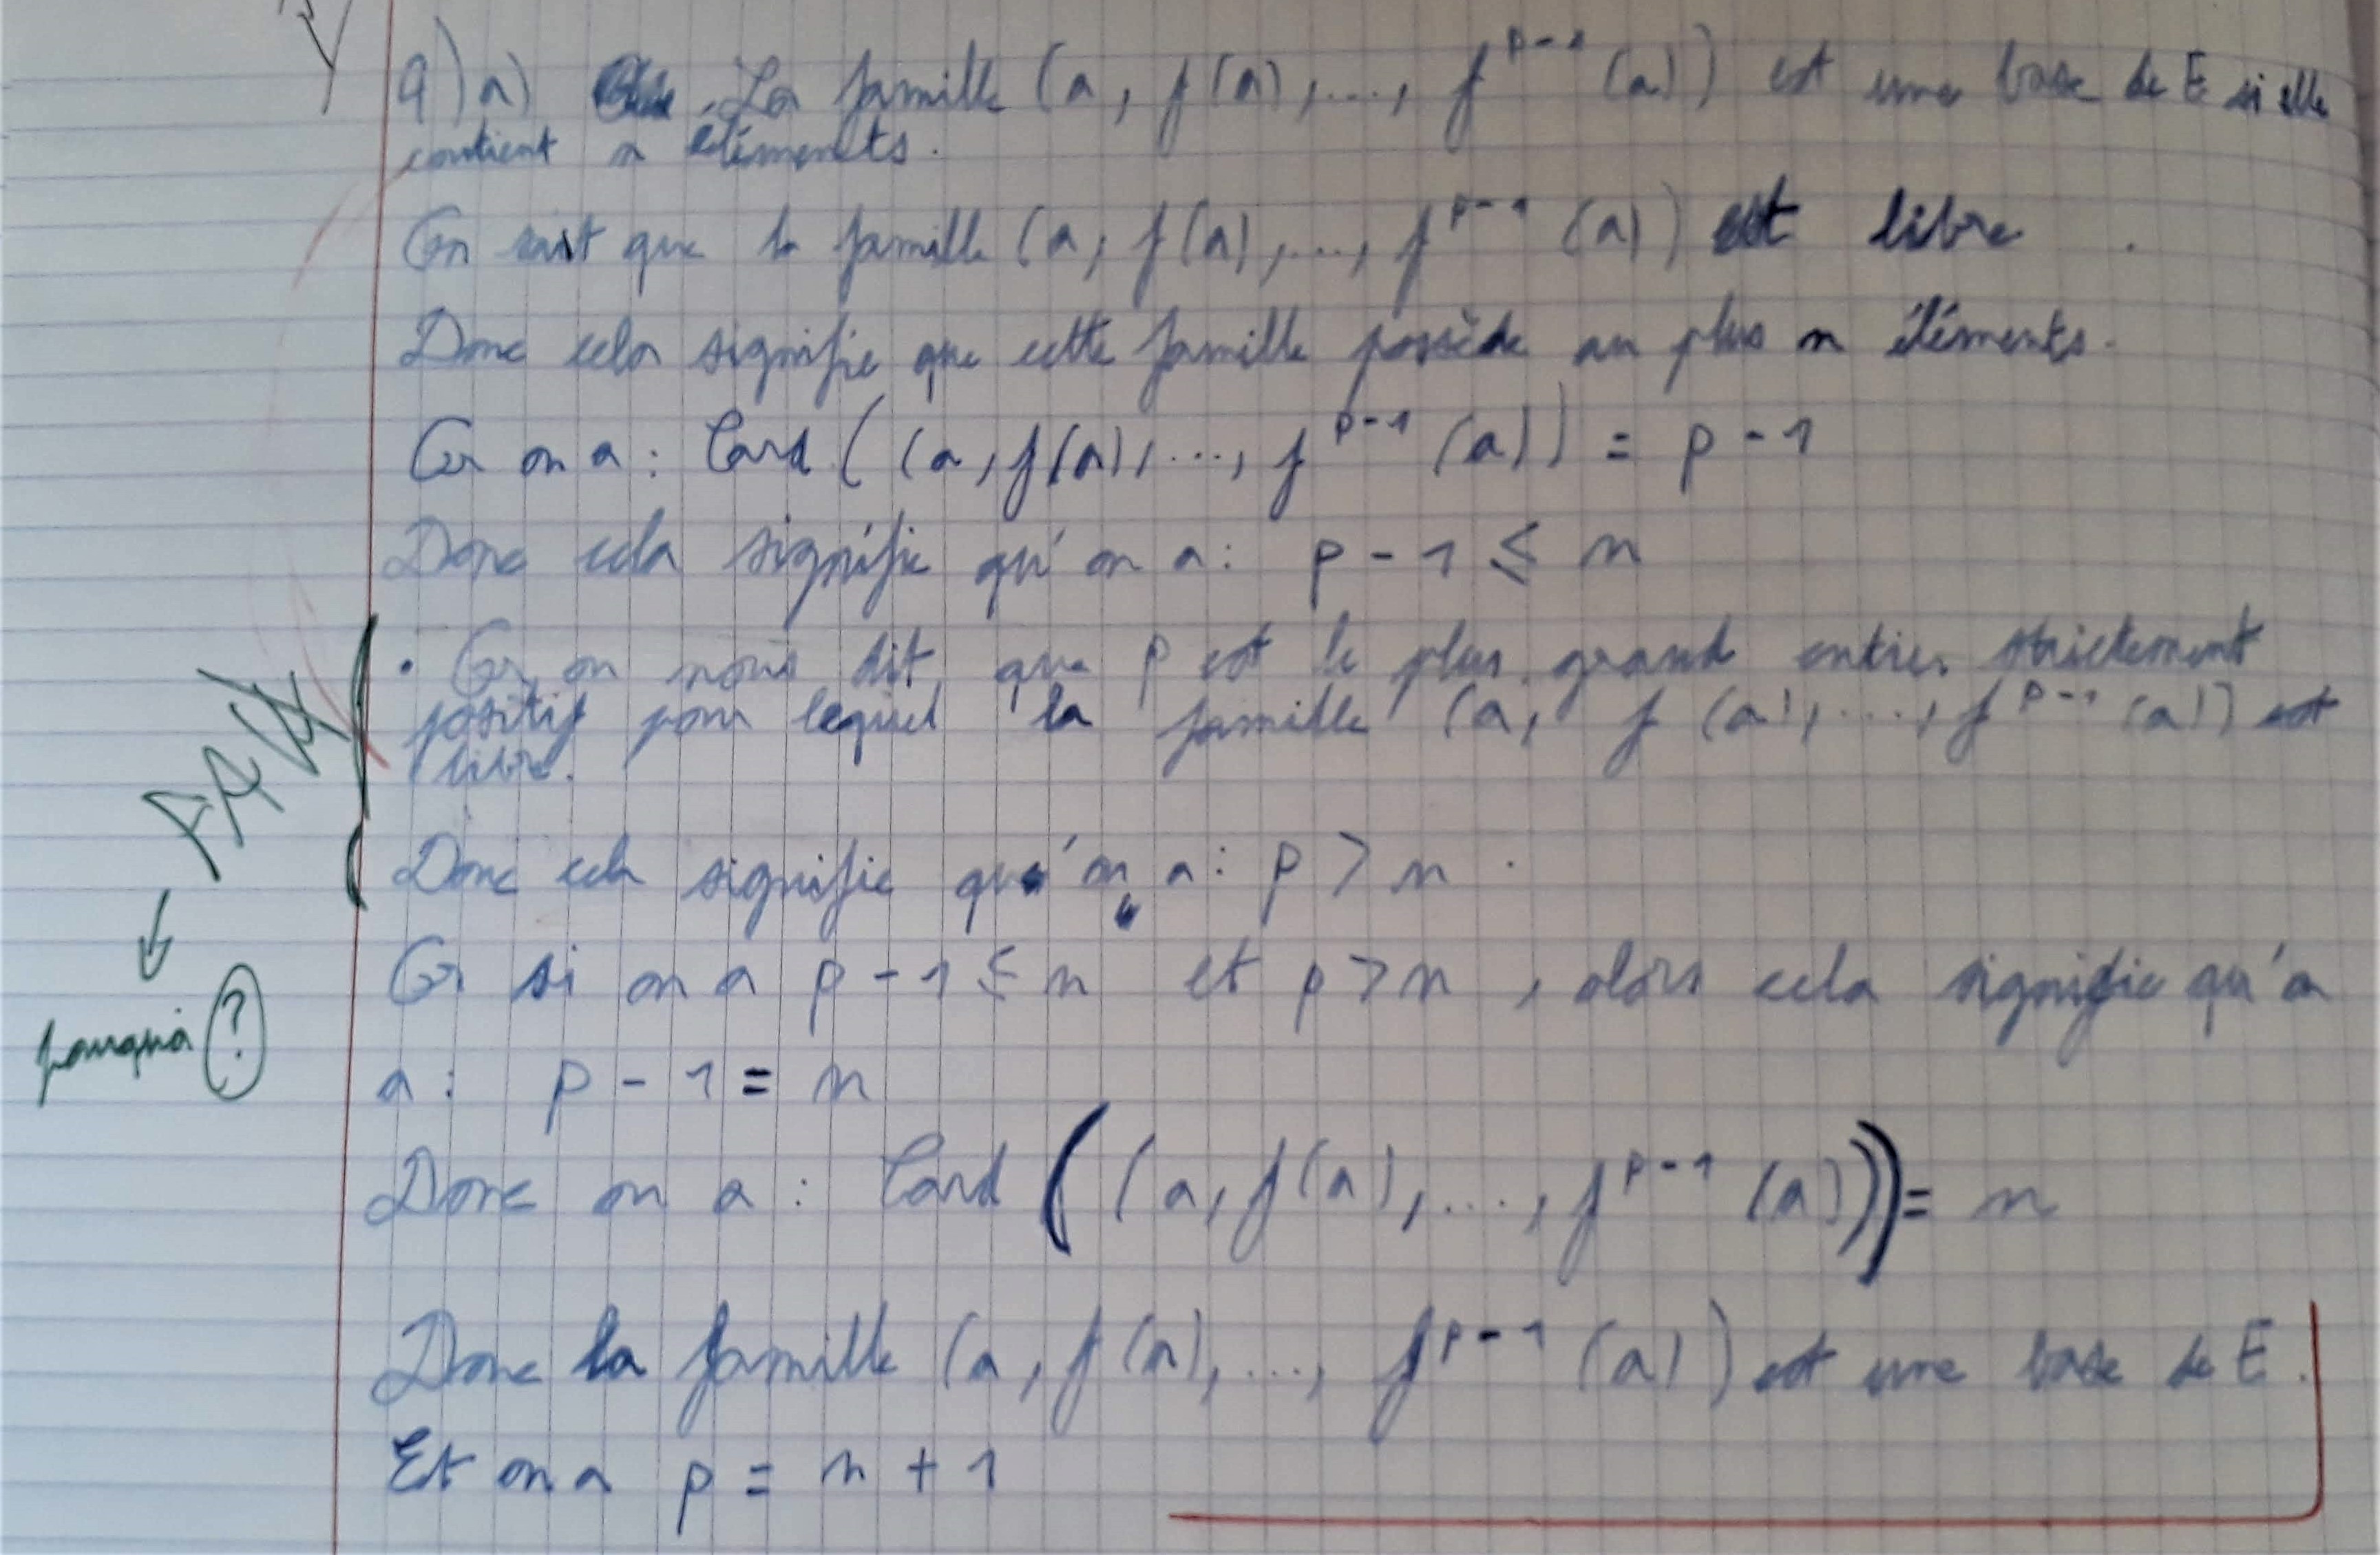 9) a) La famille (a, f(a), ..., f^{p-1}(a)) est une base de E si elle
contient n éléments.
On sait que la famille (a, f(a), ..., f^{p-1}(a)) est libre.
Donc cela signifie que cette famille possède au plus n éléments.
Or on a : Card ((a, f(a), ..., f^{p-1}(a))) = p - 1
Donc cela signifie qu'on a : p - 1 ≤ n
• Or on nous dit que p est le plus grand entier strictement
positif pour lequel la famille (a, f(a), ..., f^{p-1}(a)) est
libre.
FAUX
Donc cela signifie qu'on a : p > n.
Or si on a p - 1 ≤ n et p > n, alors cela signifie qu'on
pourquoi ?
a : p - 1 = n
Donc on a : Card ((a, f(a), ..., f^{p-1}(a))) = n
Donc la famille (a, f(a), ..., f^{p-1}(a)) est une base de E.
Et on a p = n + 1